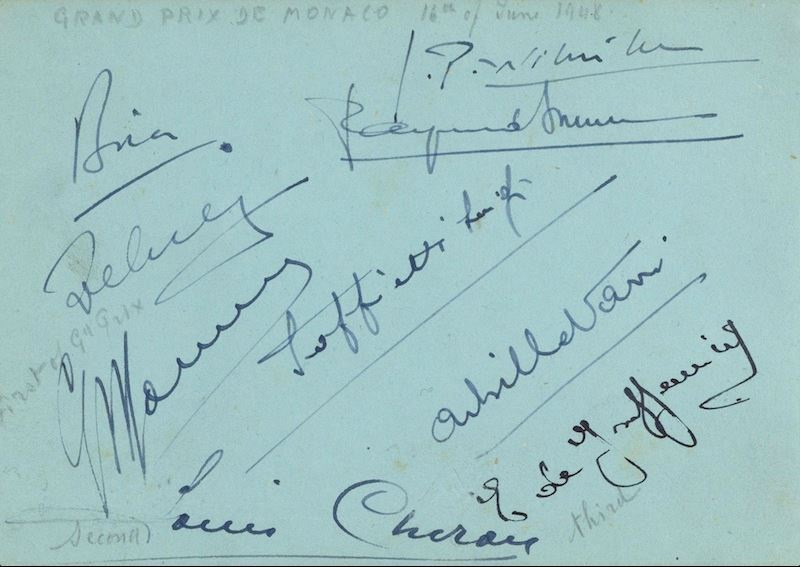 GRAND PRIX DE MONACO 16th of June 1948.
J. P. Wimille
Raymond Sommer
Bira
Soffietti Luigi
Achille Varzi
First of Gd Prix
E de Graffenried
third
Second
Louis Chiron